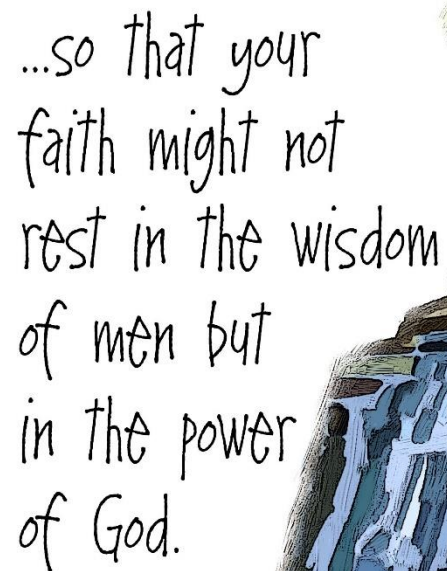 ...so that your
faith might not
rest in the wisdom
of men but
in the power
of God.